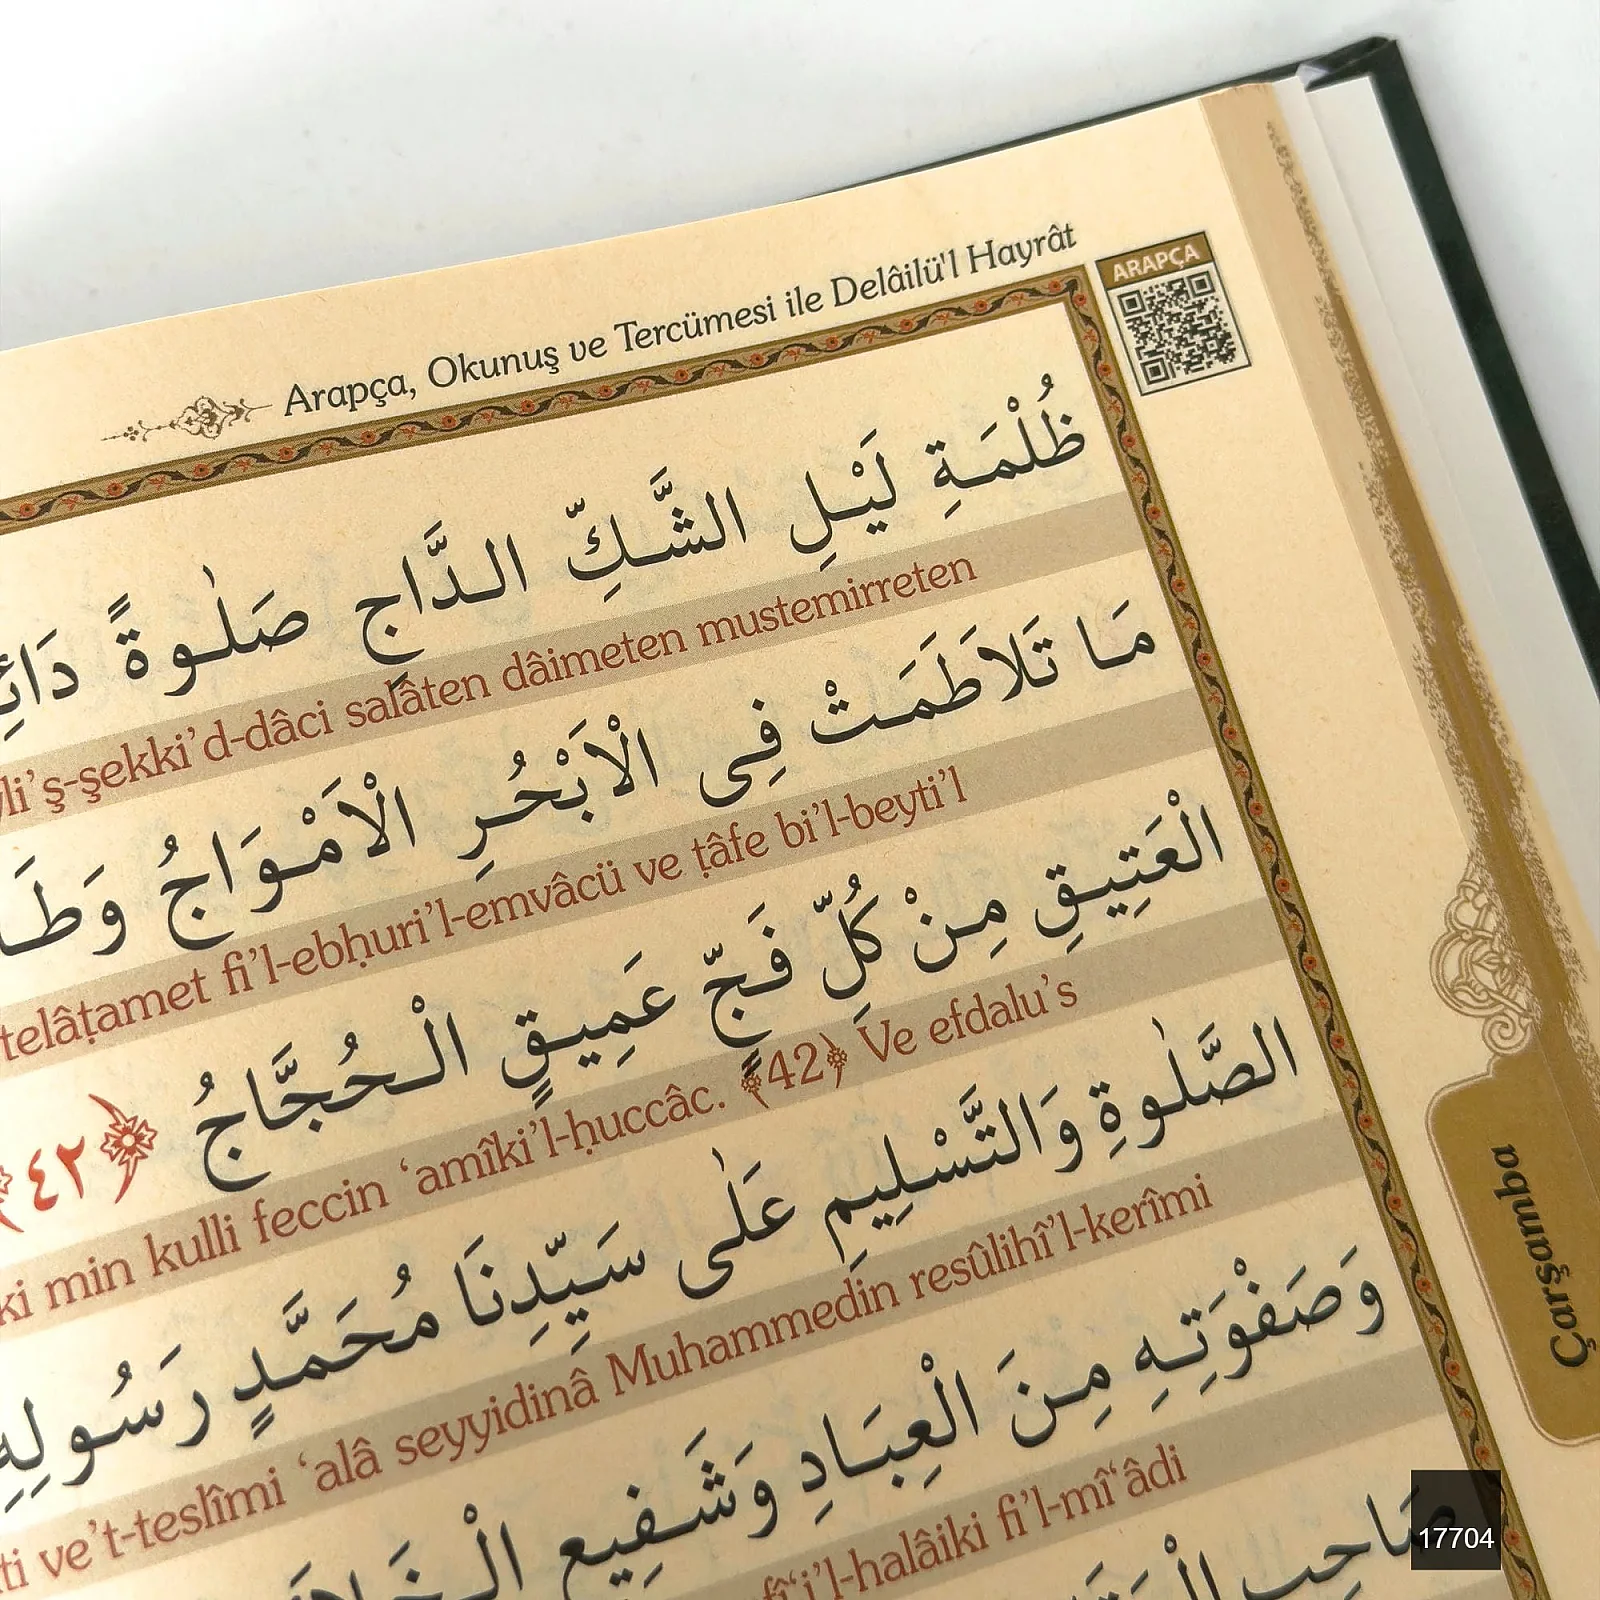 Arapça, Okunuş ve Tercümesi ile Delâilü'l Hayrât
ARAPÇA
ظُلْمَةِ لَيْلِ الشَّكِّ الدَّاجِ صَلٰوةً
şekki’d-dâci salâten dâimeten mustemirreten
مَا تَلاَطَمَتْ فِى الْاَبْحُرِ الْاَمْوَاجُ
telâṭamet fi’l-ebḥuri’l-emvâcü ve ṭâfe bi’l-beyti’l
الْعَتِيقِ مِنْ كُلِّ فَجٍّ عَمِيقٍ الْحُجَّاجُ ﴿٤٢﴾
min kulli feccin ‘amîki’l-ḥuccâc. ﴾42﴿ Ve efdalu’s
الصَّلٰوةِ وَالتَّسْلِيمِ عَلٰى سَيِّدِنَا مُحَمَّدٍ رَسُولِهِ
ve’t-teslîmi ‘alâ seyyidinâ Muhammedin resûlihî’l-kerîmi
وَصَفْوَتِهِ مِنَ الْعِبَادِ وَشَفِيعِ
halâiki fi’l-mî‘âdi
صَاحِبِ
Çarşamba
17704